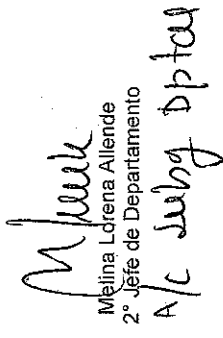 Melina Lorena Allende
2° Jefe de Departamento
A/c Subg Dptal